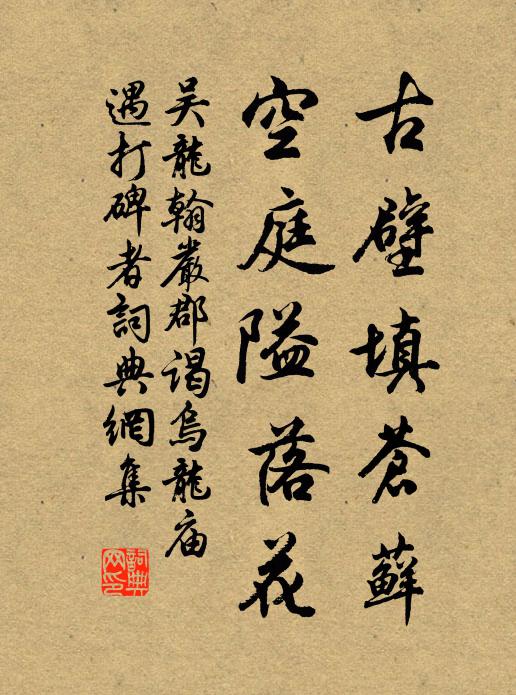 古壁填蒼蘚
空庭隘落花
吴龍翰嚴郡謁烏龍庙
遇打碑者詞典網集
詞典网印